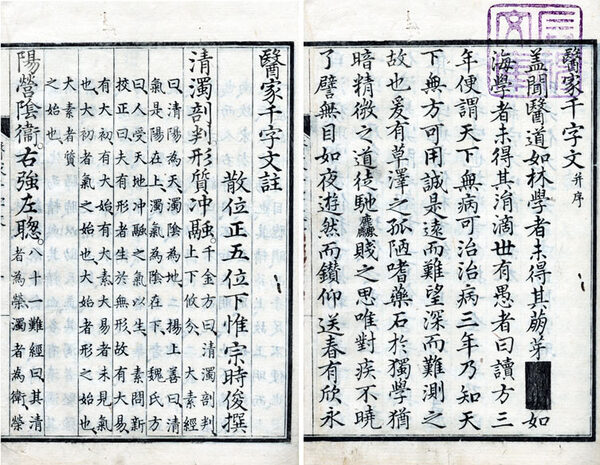 醫家千字文 并序
盖聞醫道如林學者未得其萠芽 如
海學者未得其涓滴世有愚者曰讀方三
年便謂天下無病可治治病三年乃知天
下無方可用誠是遠而難望深而難測之
故也爰有草澤之孤陋嗜藥石於獨學猶
暗精微之道徒馳麤賤之思唯對疾不曉
了譬無目如夜遊然而鑽仰送春有欣永
醫家千字文註
散位正五位下惟宗時俊撰
清濁剖判形質冲融。千金方曰清濁剖判
上下攸分、大素經
曰、清陽為天、濁陰為地、楊上善曰清
氣是陽在上、濁氣為陰在下、魏氏方
曰人受天地冲融之氣以生、素問新
校正曰夫有形者生於無形故有大易、
有大初有大始有大素大易者未見氣
也、大初者氣之始也、大始者形之始也、
大素者質
之始也
陽營陰衞。右強左聰。八十一難經曰其清
者為榮濁者為衞榮